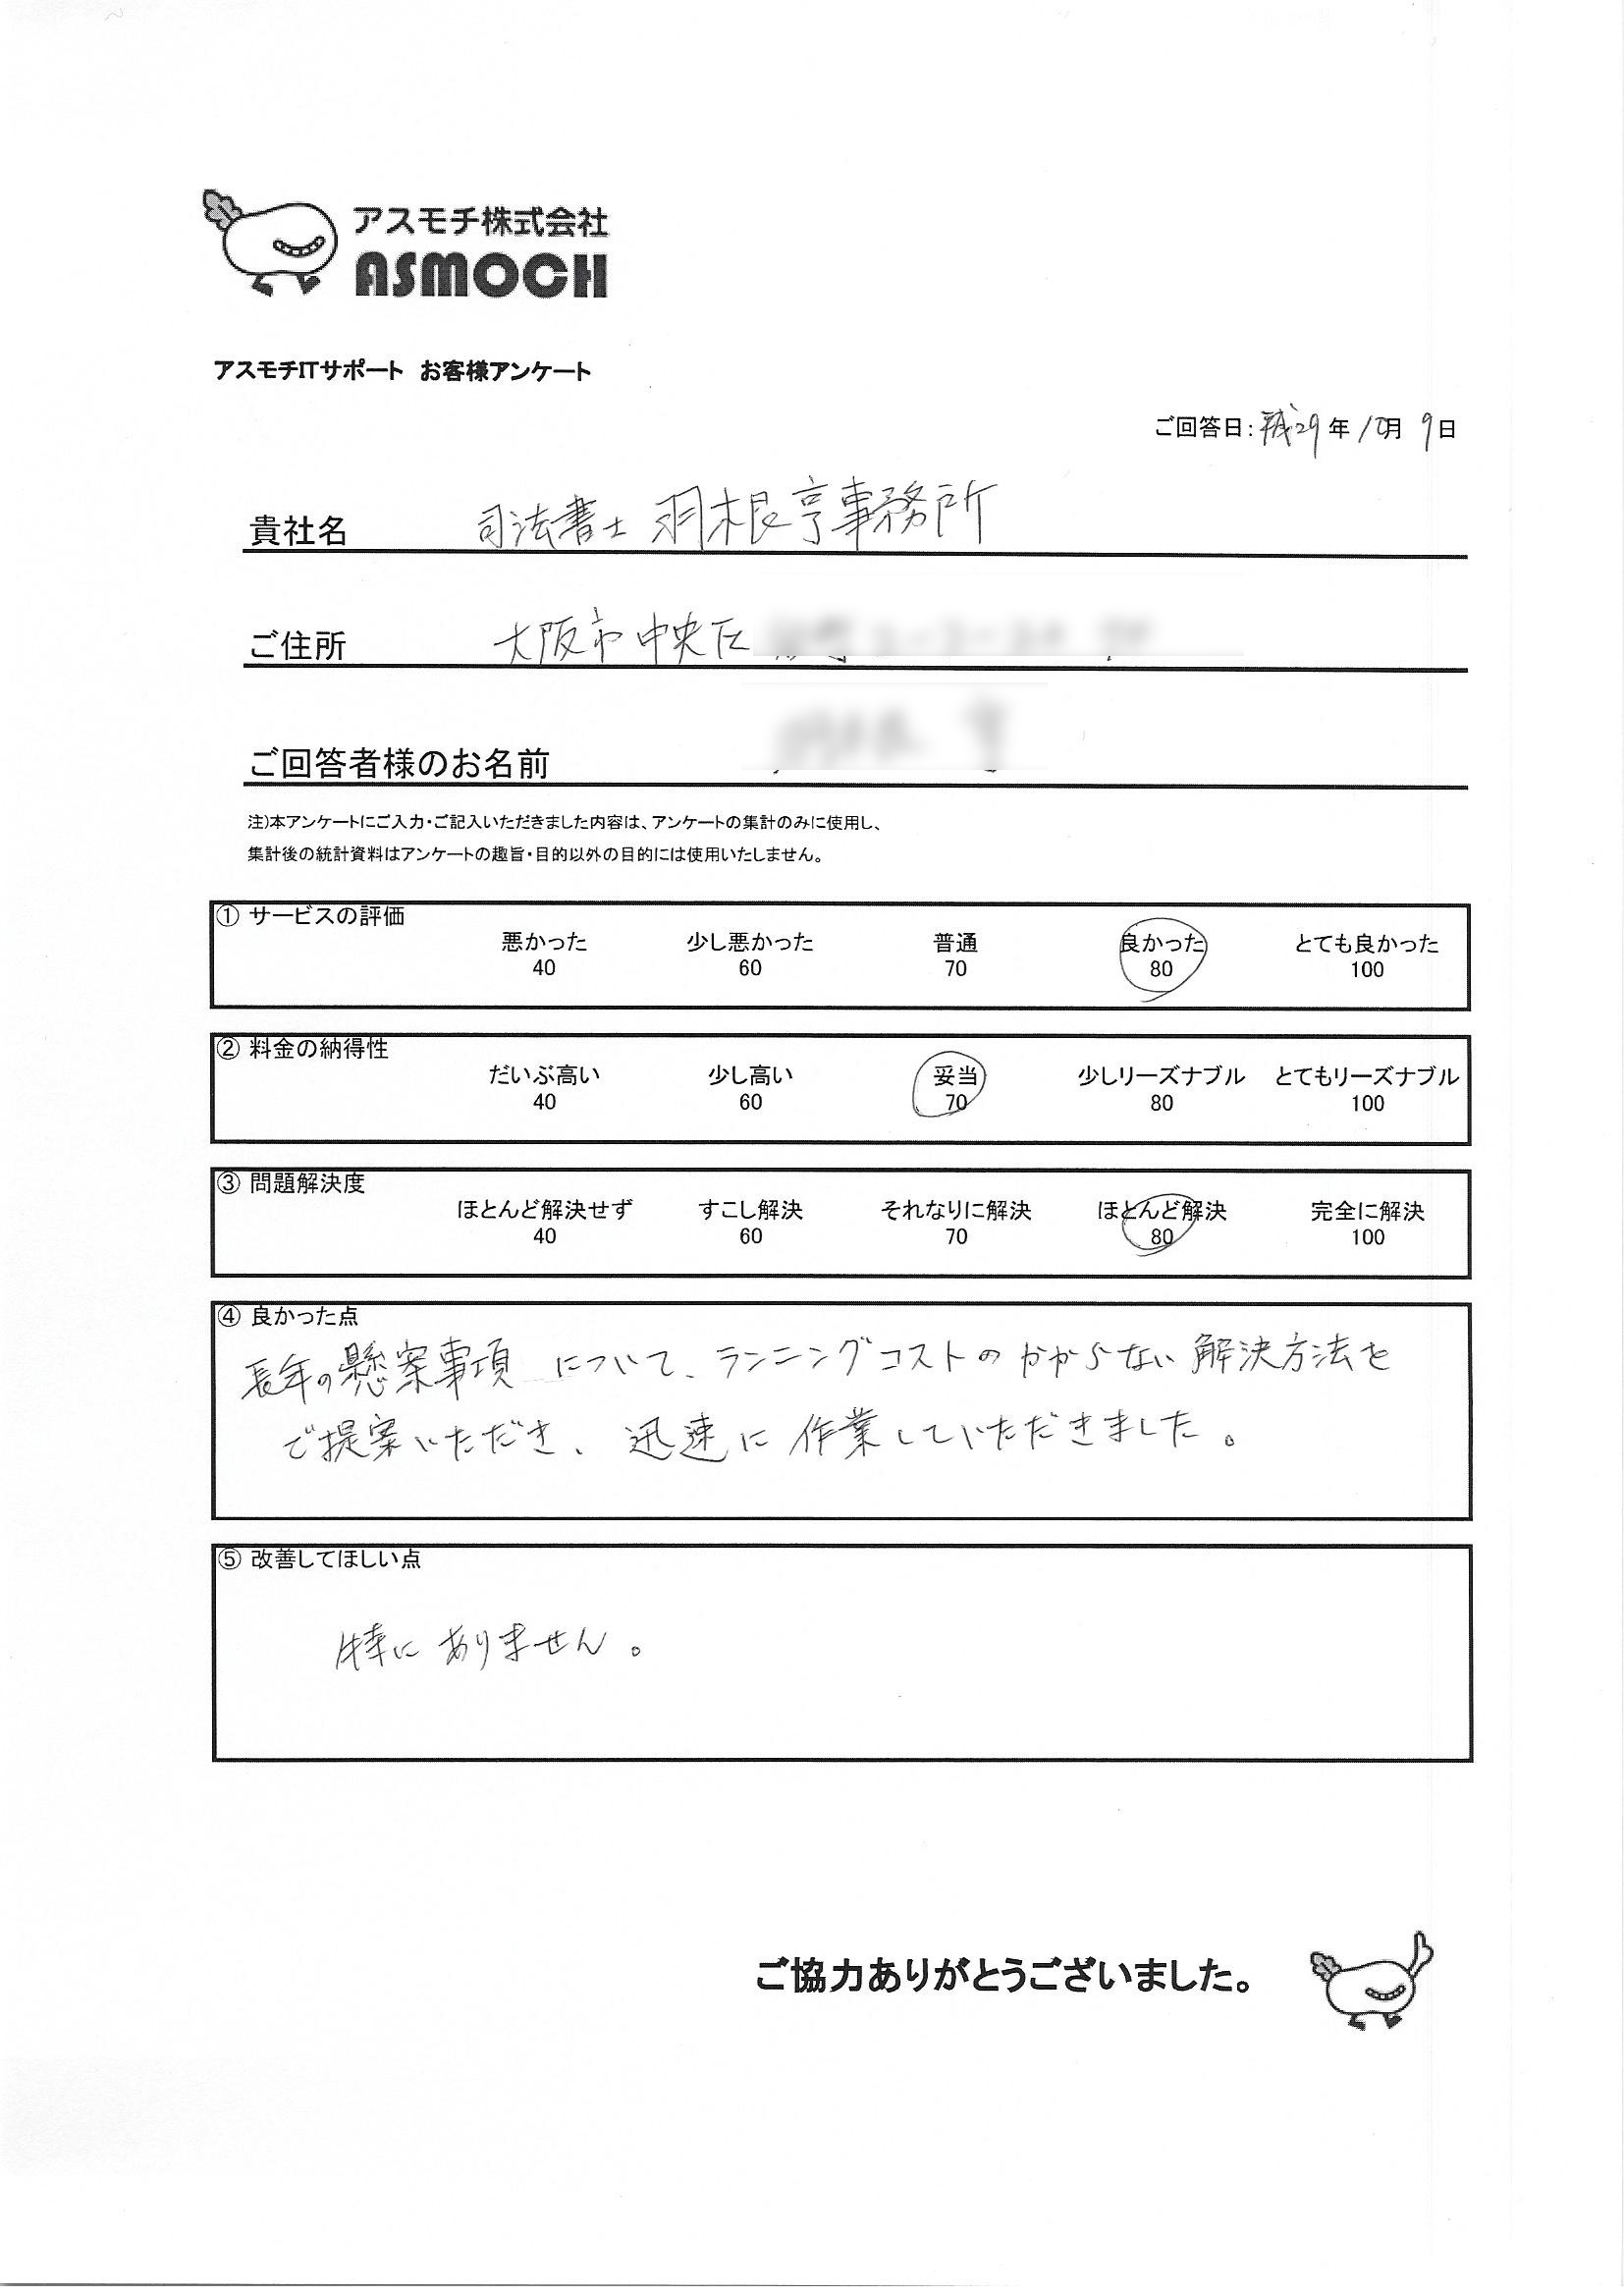 アスモチ株式会社
ASMOCH
アスモチITサポート お客様アンケート
ご回答日：平成29年10月9日
貴社名 司法書士 羽根亨事務所
ご住所 大阪市中央区
ご回答者様のお名前
注)本アンケートにご入力・ご記入いただきました内容は、アンケートの集計のみに使用し、
集計後の統計資料はアンケートの趣旨・目的以外の目的には使用いたしません。
① サービスの評価
悪かった 少し悪かった 普通 良かった とても良かった
40 60 70 80 100
② 料金の納得性
だいぶ高い 少し高い 妥当 少しリーズナブル とてもリーズナブル
40 60 70 80 100
③ 問題解決度
ほとんど解決せず すこし解決 それなりに解決 ほとんど解決 完全に解決
40 60 70 80 100
④ 良かった点
長年の懸案事項について、ランニングコストのかからない解決方法を
ご提案いただき、迅速に作業していただきました。
⑤ 改善してほしい点
特にありません。
ご協力ありがとうございました。